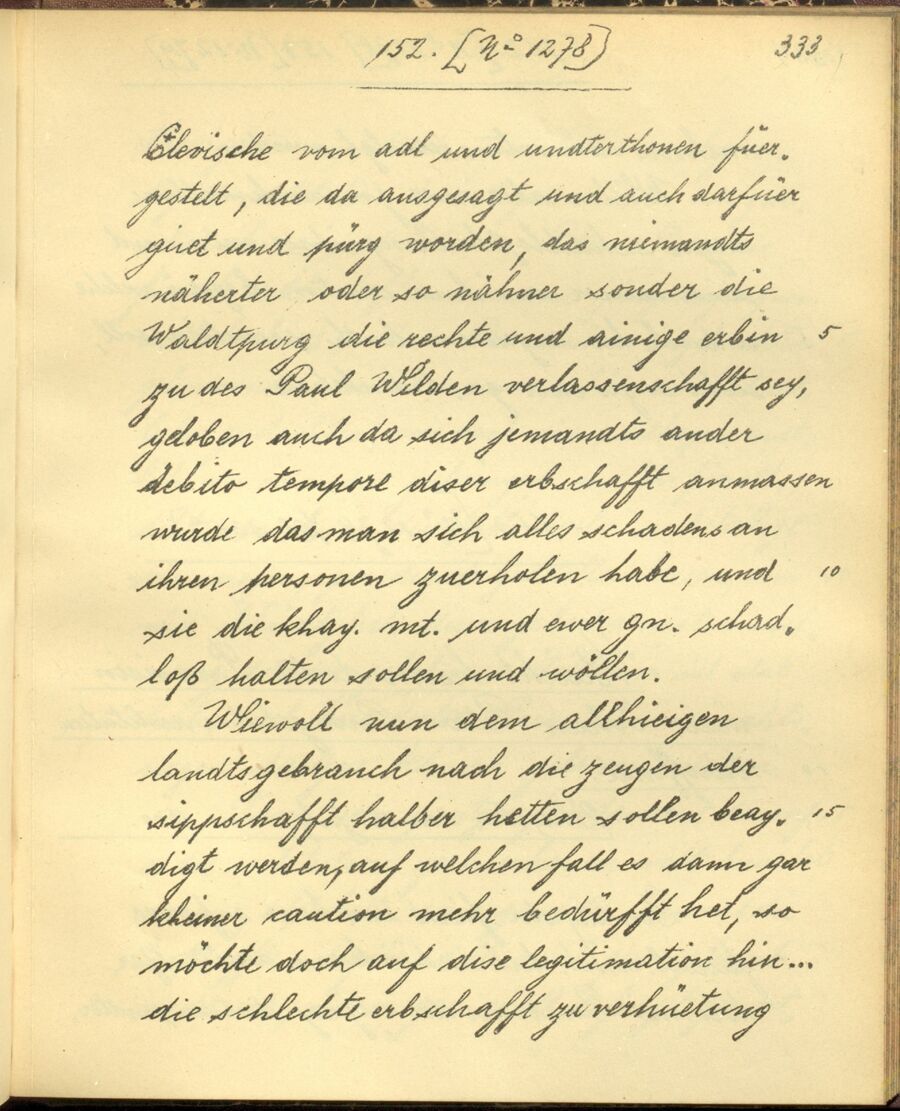 152. [No 1278] 333
Clevische vom adl und undterthonen füer-
gestelt, die da ausgesagt und auch darfüer
guet und pürg worden, das niemandts
näherter oder so nähner sonder die
Waldtpurg die rechte und ainige erbin 5
zu des Paul Wilden verlassenschafft sey,
geloben auch da sich jemandts ander
debito tempore diser erbschafft anmassen
wurde das man sich alles schadens an
ihren personen zuerholen habe, und 10
sie die khay. mt. und ewer gn. schad-
loß halten sollen und wöllen.
Wiewoll nun dem allhieigen
landtsgebrauch nach die zeugen der
sippschafft halber hetten sollen beay- 15
digt werden, auf welchen fall es dann gar
kheiner caution mehr bedürfft het, so
möchte doch auf dise legitimation hin...
die schlechte erbschafft zu verhüetung